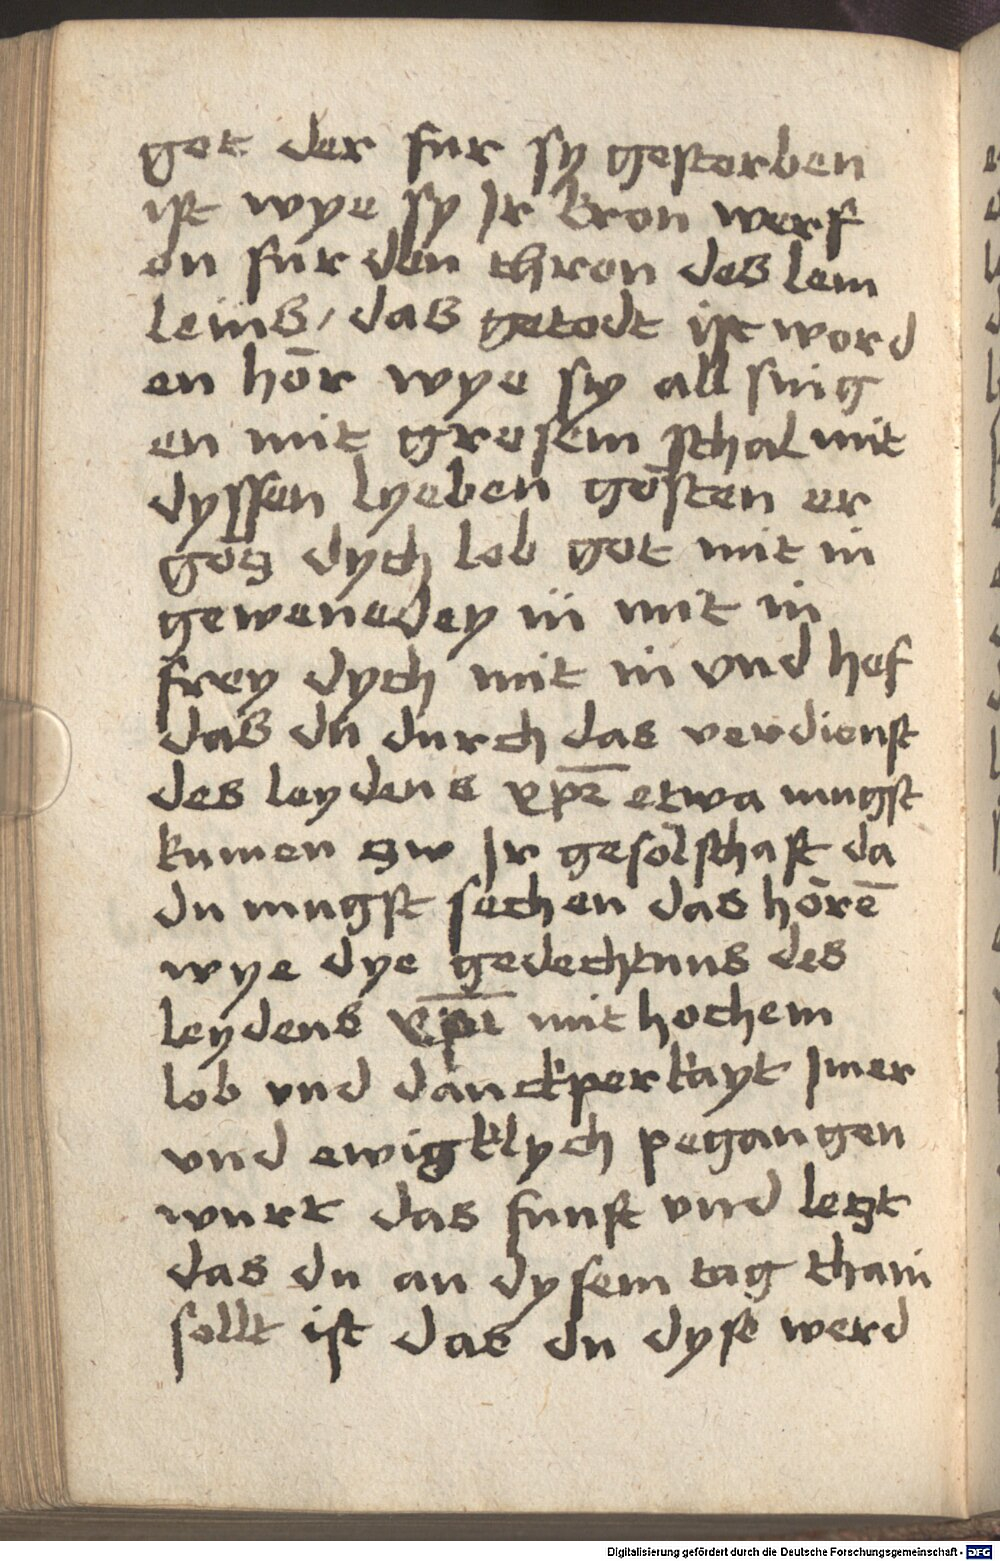 got der fur sy gestorben
ist wye sy Jr kron werf
en fur den thron des lem
leins / das getodt ist word
en hōr wye sy all sing
en mit grosem schal mit
dyssen lyeben gösten er
gög dych lob got mit in
gewenedey in mit in
frey dych mit in vnd hof
das du durch das verdienst
des leydens xp̄i etwa mugst
kumen zw Jr gesölschaft da
du mugst sechen das hörē
wye dye gedechtnus des
leydens xp̄i mit hochem
lob vnd danckperkayt Jmer
vnd ewigklych pegangen
wurt das funft vnd leczt
das du an dysem tag thain
sollt ist das du dyse werd
Digitalisierung gefördert durch die Deutsche Forschungsgemeinschaft - DFG